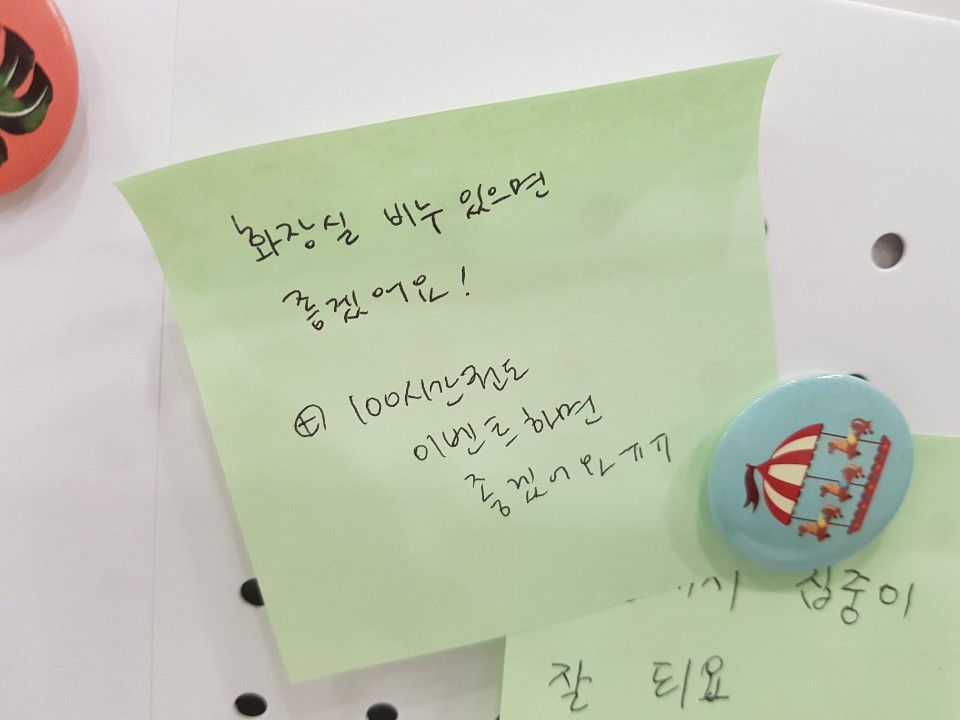 화장실 비누 있으면
좋겠어요!
⊕ 100시간권도
이벤트하면
좋겠어요ㅠㅠ
집중이
잘 되요